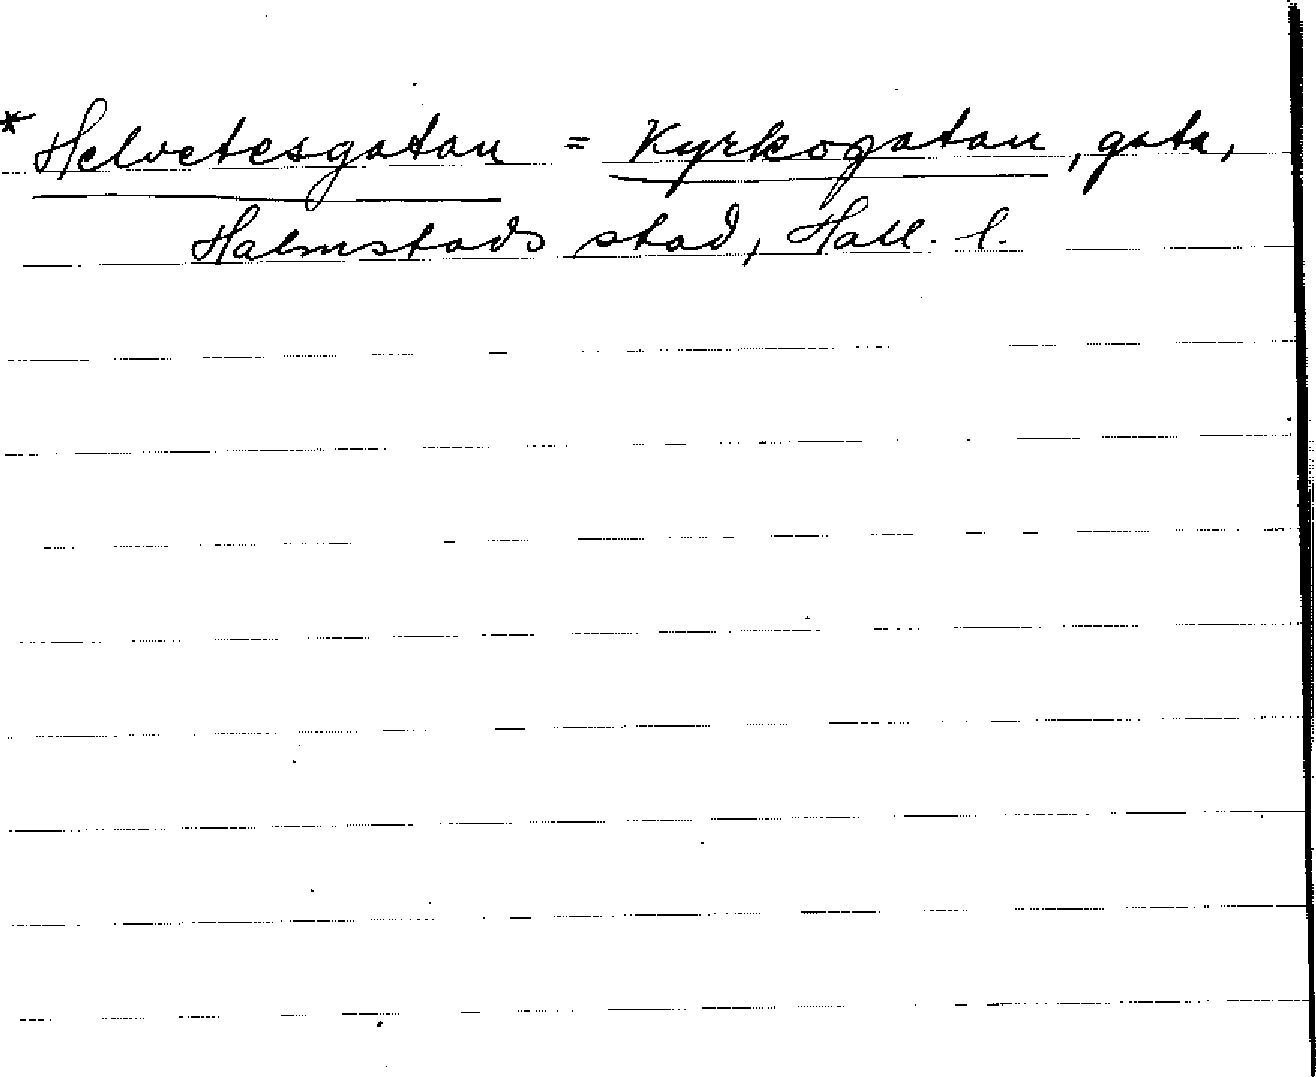 * Helvetesgatan = Kyrkogatan, gata,
Halmstads stad, Hall. l.